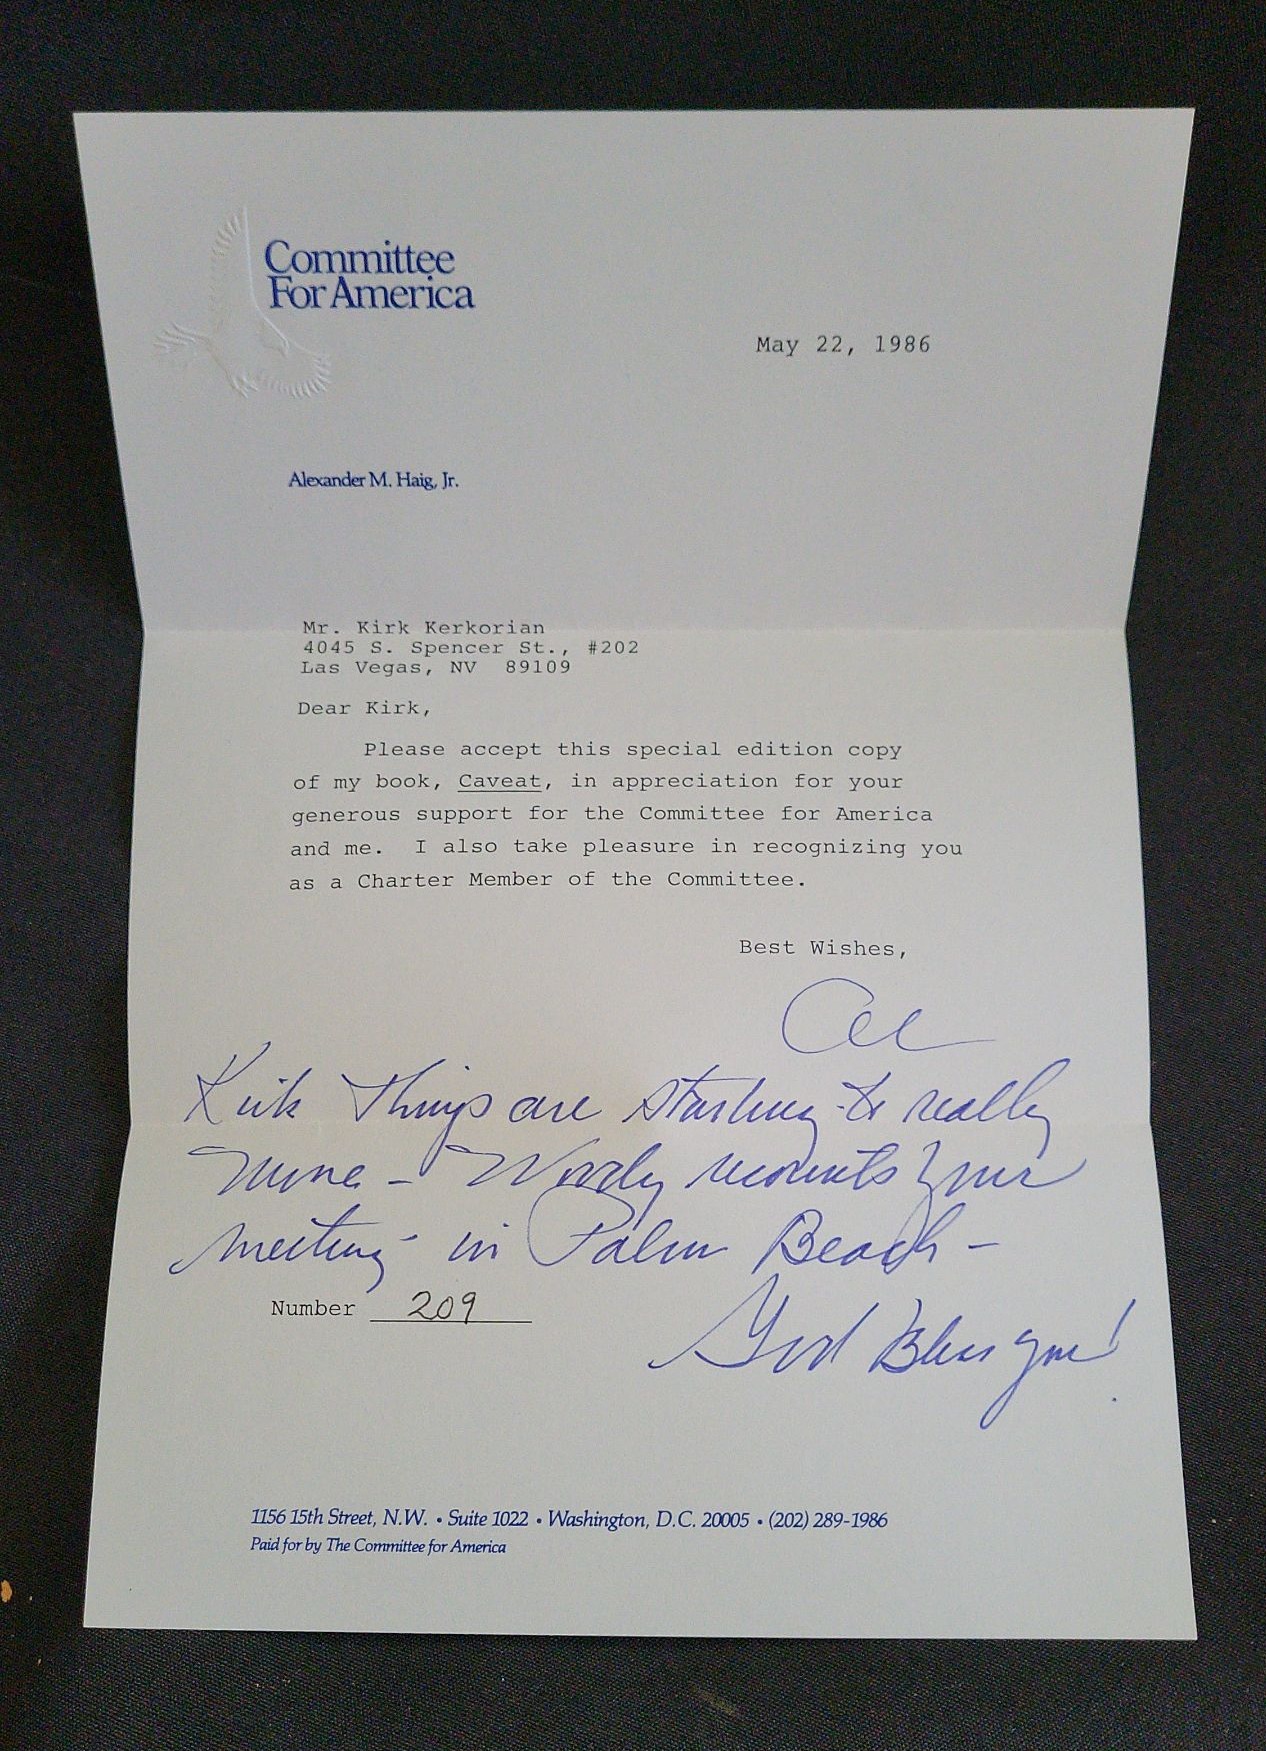 Committee
For America
May 22, 1986
Alexander M. Haig, Jr.
Mr. Kirk Kerkorian
4045 S. Spencer St., #202
Las Vegas, NV 89109
Dear Kirk,
Please accept this special edition copy
of my book, Caveat, in appreciation for your
generous support for the Committee for America
and me. I also take pleasure in recognizing you
as a Charter Member of the Committee.
Best Wishes,
Al
Kirk Things are starting to really
move - Woody recounts your
meeting in Palm Beach -
Number 209
God Bless you!
1156 15th Street, N.W. • Suite 1022 • Washington, D.C. 20005 • (202) 289-1986
Paid for by The Committee for America